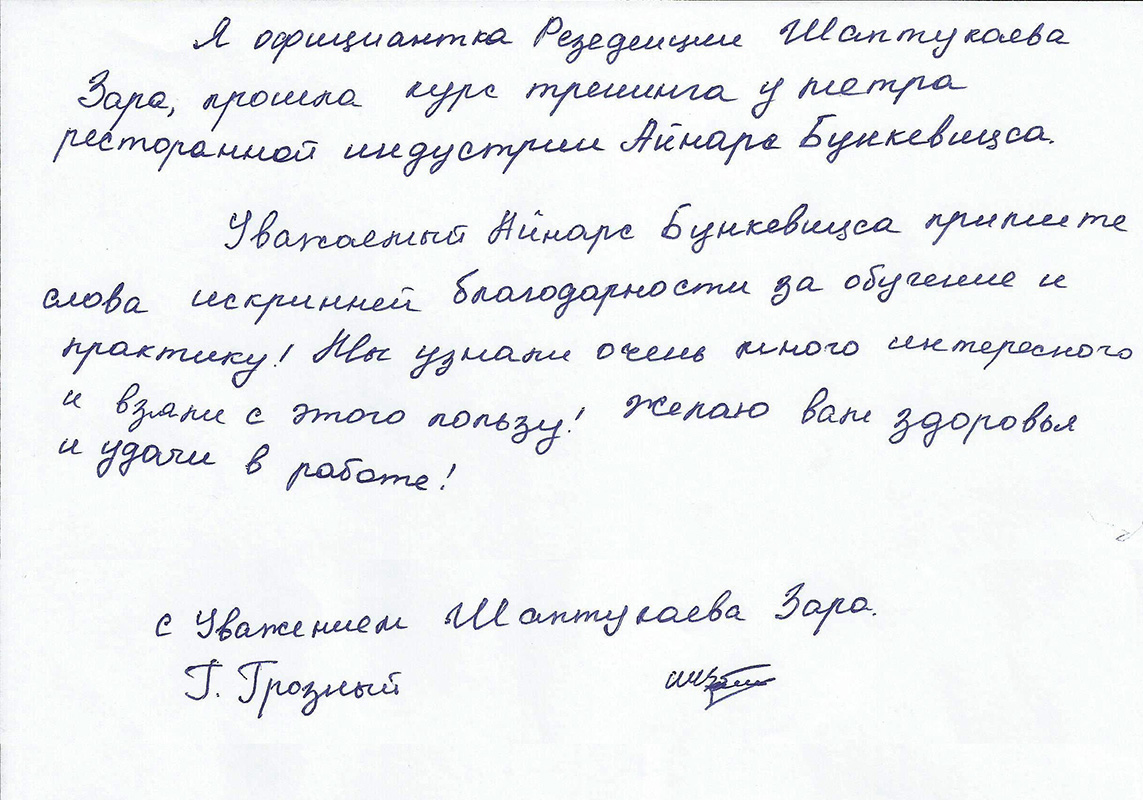 Я официантка Резеденции Шаптукаева
Зара, прошла курс тренинга у метра
ресторанной индустрии Айнарс Бункевицса.
Уважаемый Айнарс Бункевицса примите
слова искринней благодарности за обучение и
практику! Мы узнали очень много интересного
и взяли с этого пользу! Желаю вам здоровья
и удачи в работе!
с Уважением Шаптукаева Зара.
Г. Грозный